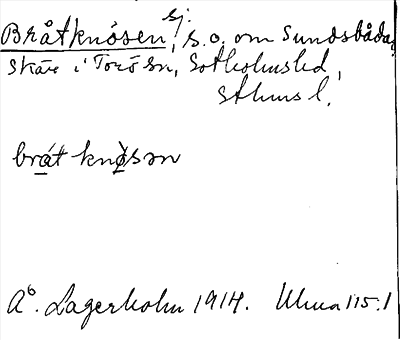 Bråtknösen, sj. s.o. om Sundsbåda,
skär i Torö sn, Sotholms hd,
Sthms l.
bråt knösən
Ao. Lagerholm 1914. Uhua 115:1